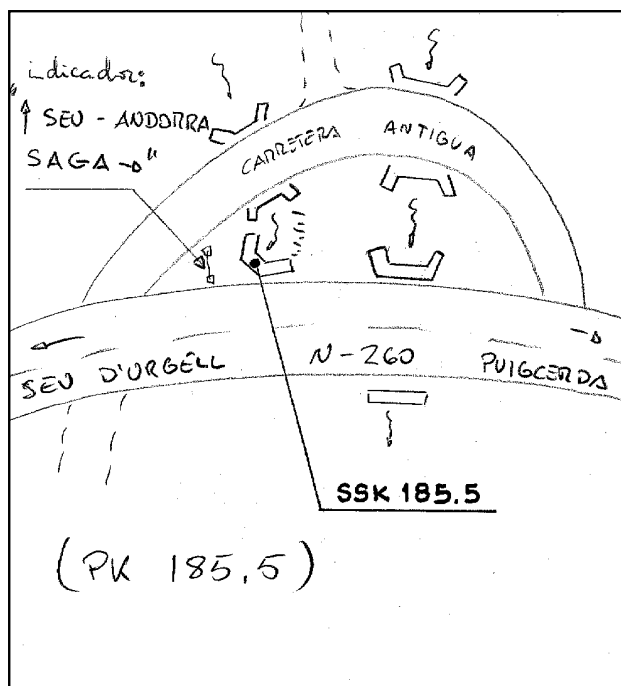 "indicador:
↑ SEU - ANDORRA
SAGA →"
CARRETERA ANTIGUA
SEU D'URGELL N-260 PUIGCERDA
SSK 185.5
(PK 185,5)